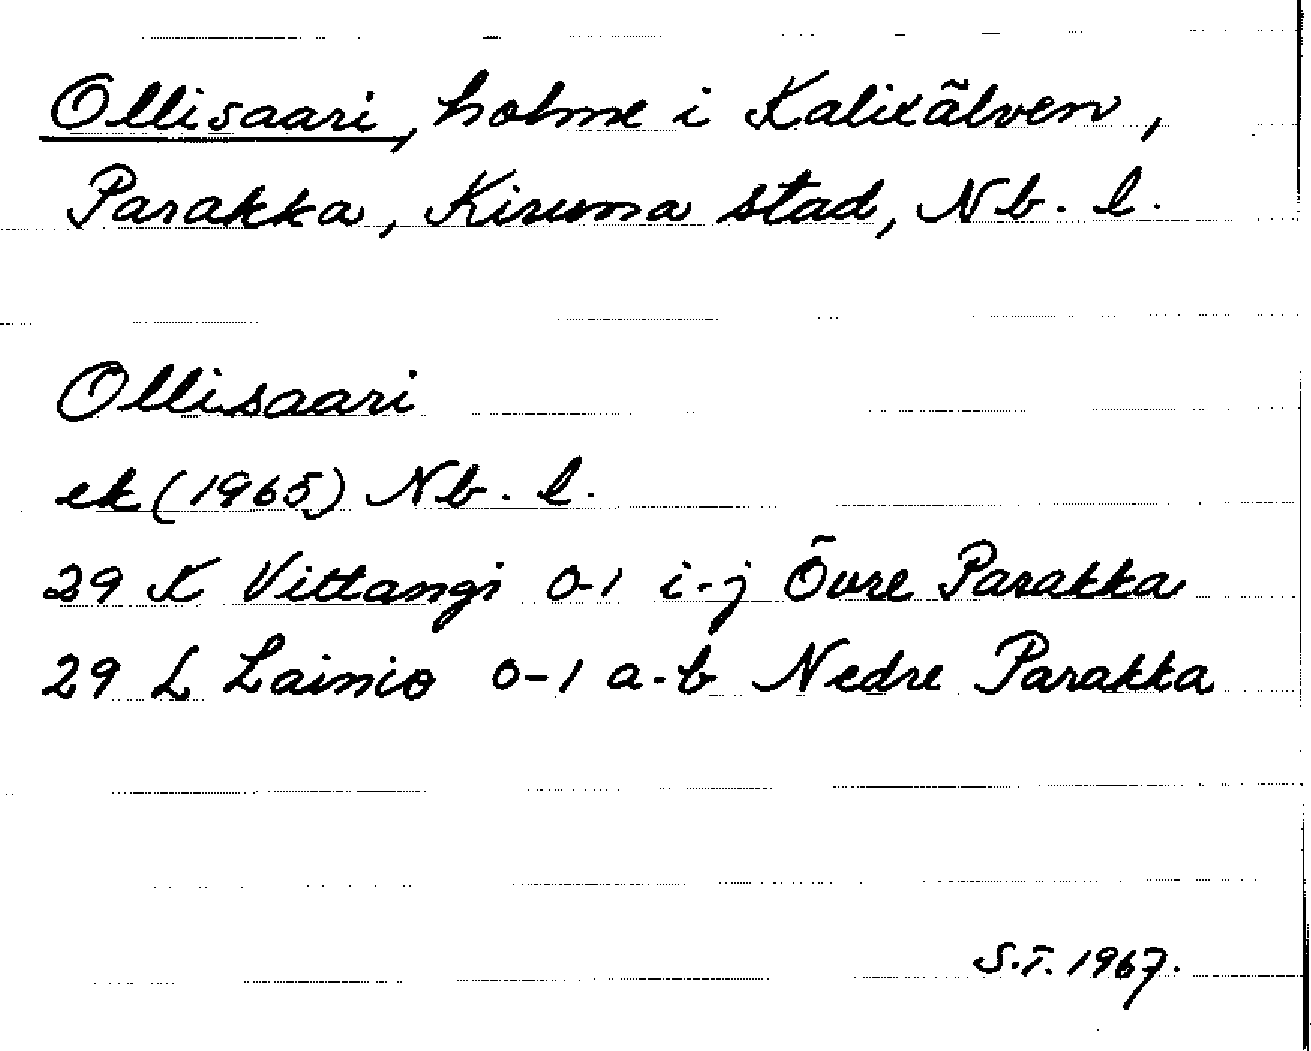 Ollisaari, holme i Kalixälven,
Parakka, Kiruna stad, Nb. l.
Ollisaari
ek (1965) Nb. l.
29 K Vittangi 0-1 i-j Övre Parakka
29 L Lainio 0-1 a-b Nedre Parakka
S.T. 1967.